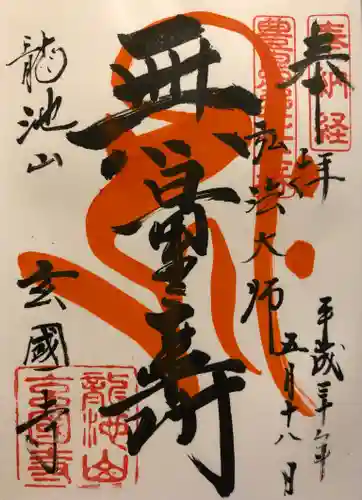 奉納経
奉拝
平成
五月十八日
弘法大師
無量壽
龍池山
玄國寺
龍池山
玄國寺